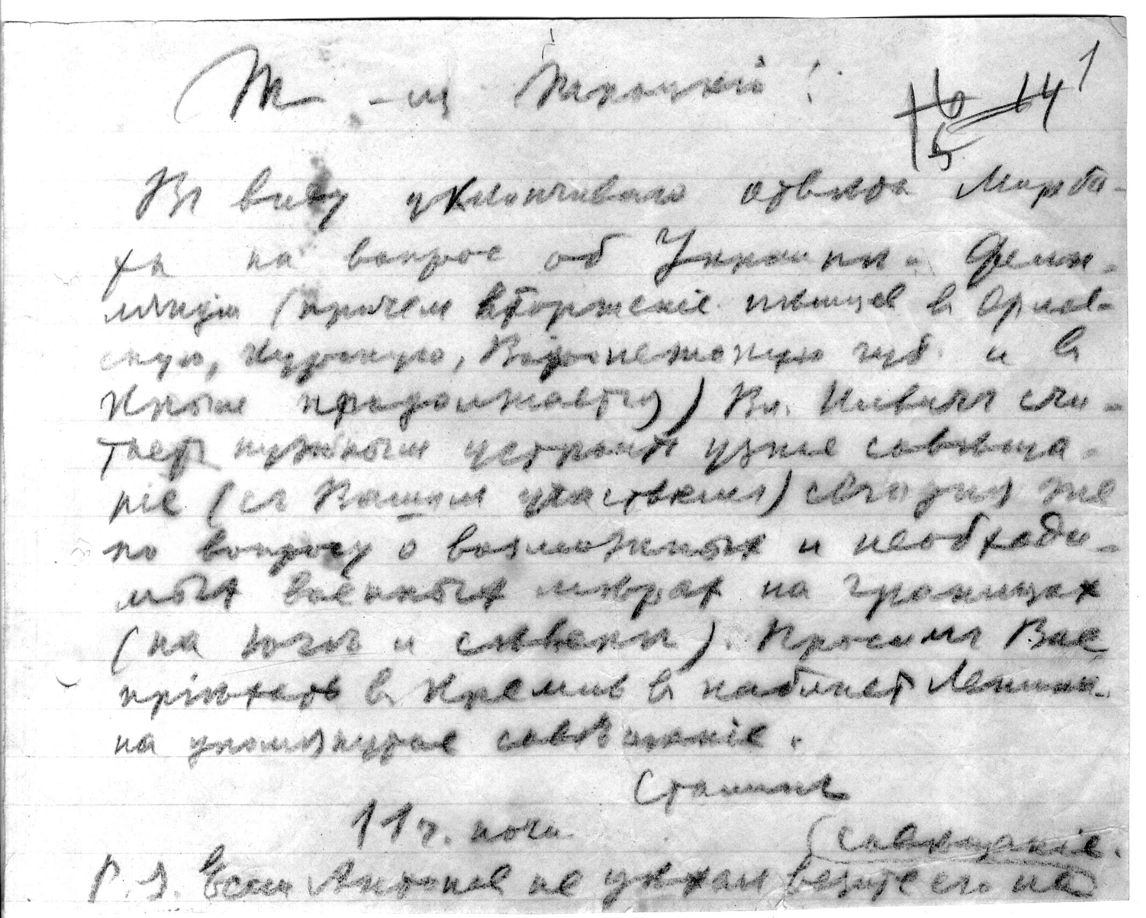 Т-щ Троцкій!
1
16 14
5
Въ виду уклончиваго отвѣта Мирба-
ха на вопрос об Украинѣ - Фин-
ляндіи (причем вторженіе нѣмцев в Орлов-
скую, Курскую, Воронежскую губ. и в
Крым продолжается) Вл. Ильичъ счи-
тает нужным устроить узкое совѣща-
ніе (съ Вашим участіем) сегодня же
по вопросу о возможных и необходи-
мых военных мѣрах на границах
(на югѣ и сѣверѣ). Просимъ Вас
пріѣхать в Кремль в кабинет Ленина
на упомянутое совѣщаніе.
Сталинъ
11 ч. ночи
(совещаніе.
P.S. Если Антонов не уѣхал везите его на